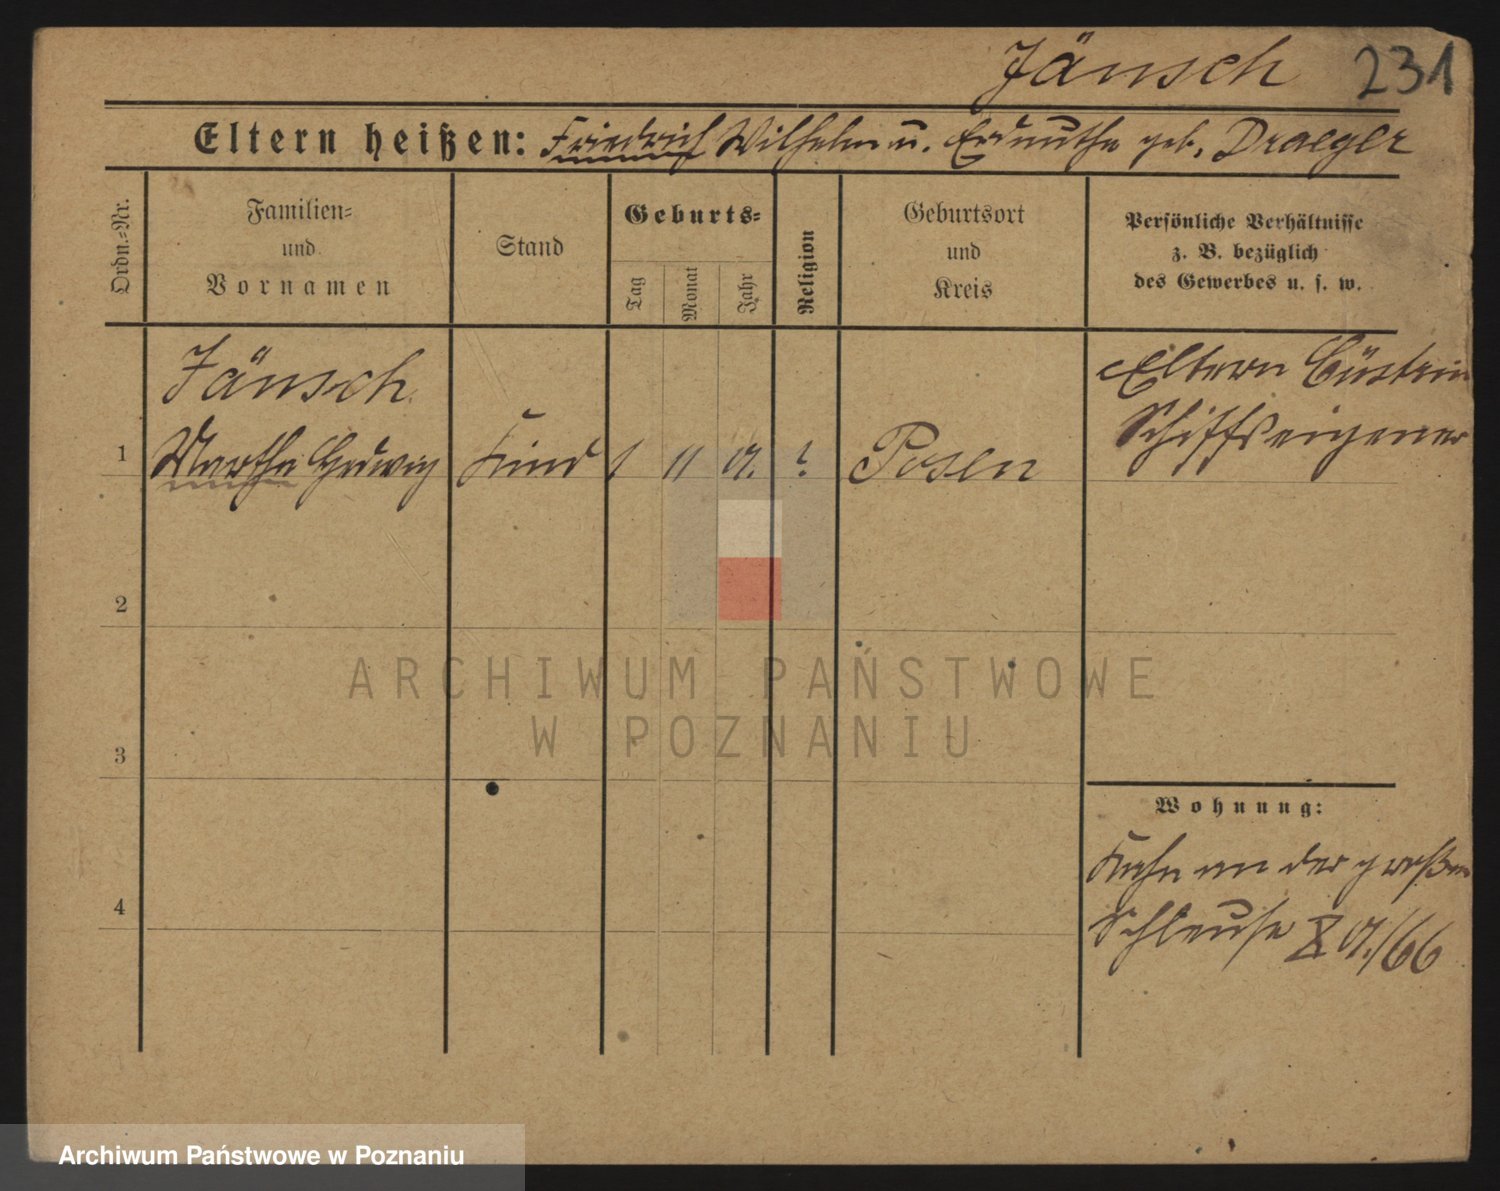 Jänsch 231
Eltern heißen: Friedrich Wilhelm u. Erdmuthe geb. Draeger
Ordn.-Nr.
Familien-
und
Vornamen
Stand
Geburts-
Tag
Monat
Jahr
Religion
Geburtsort
und
Kreis
Persönliche Verhältnisse
z. B. bezüglich
des Gewerbes u. s. w.
Jänsch
1 Martha Hedwig Kind 1 11 ? Posen
Eltern Cüstrin
Schiffseigener
2
3
4
Wohnung:
Kahn an der großen
Schleuse /66
ARCHIWUM PAŃSTWOWE
W POZNANIU
Archiwum Państwowe w Poznaniu